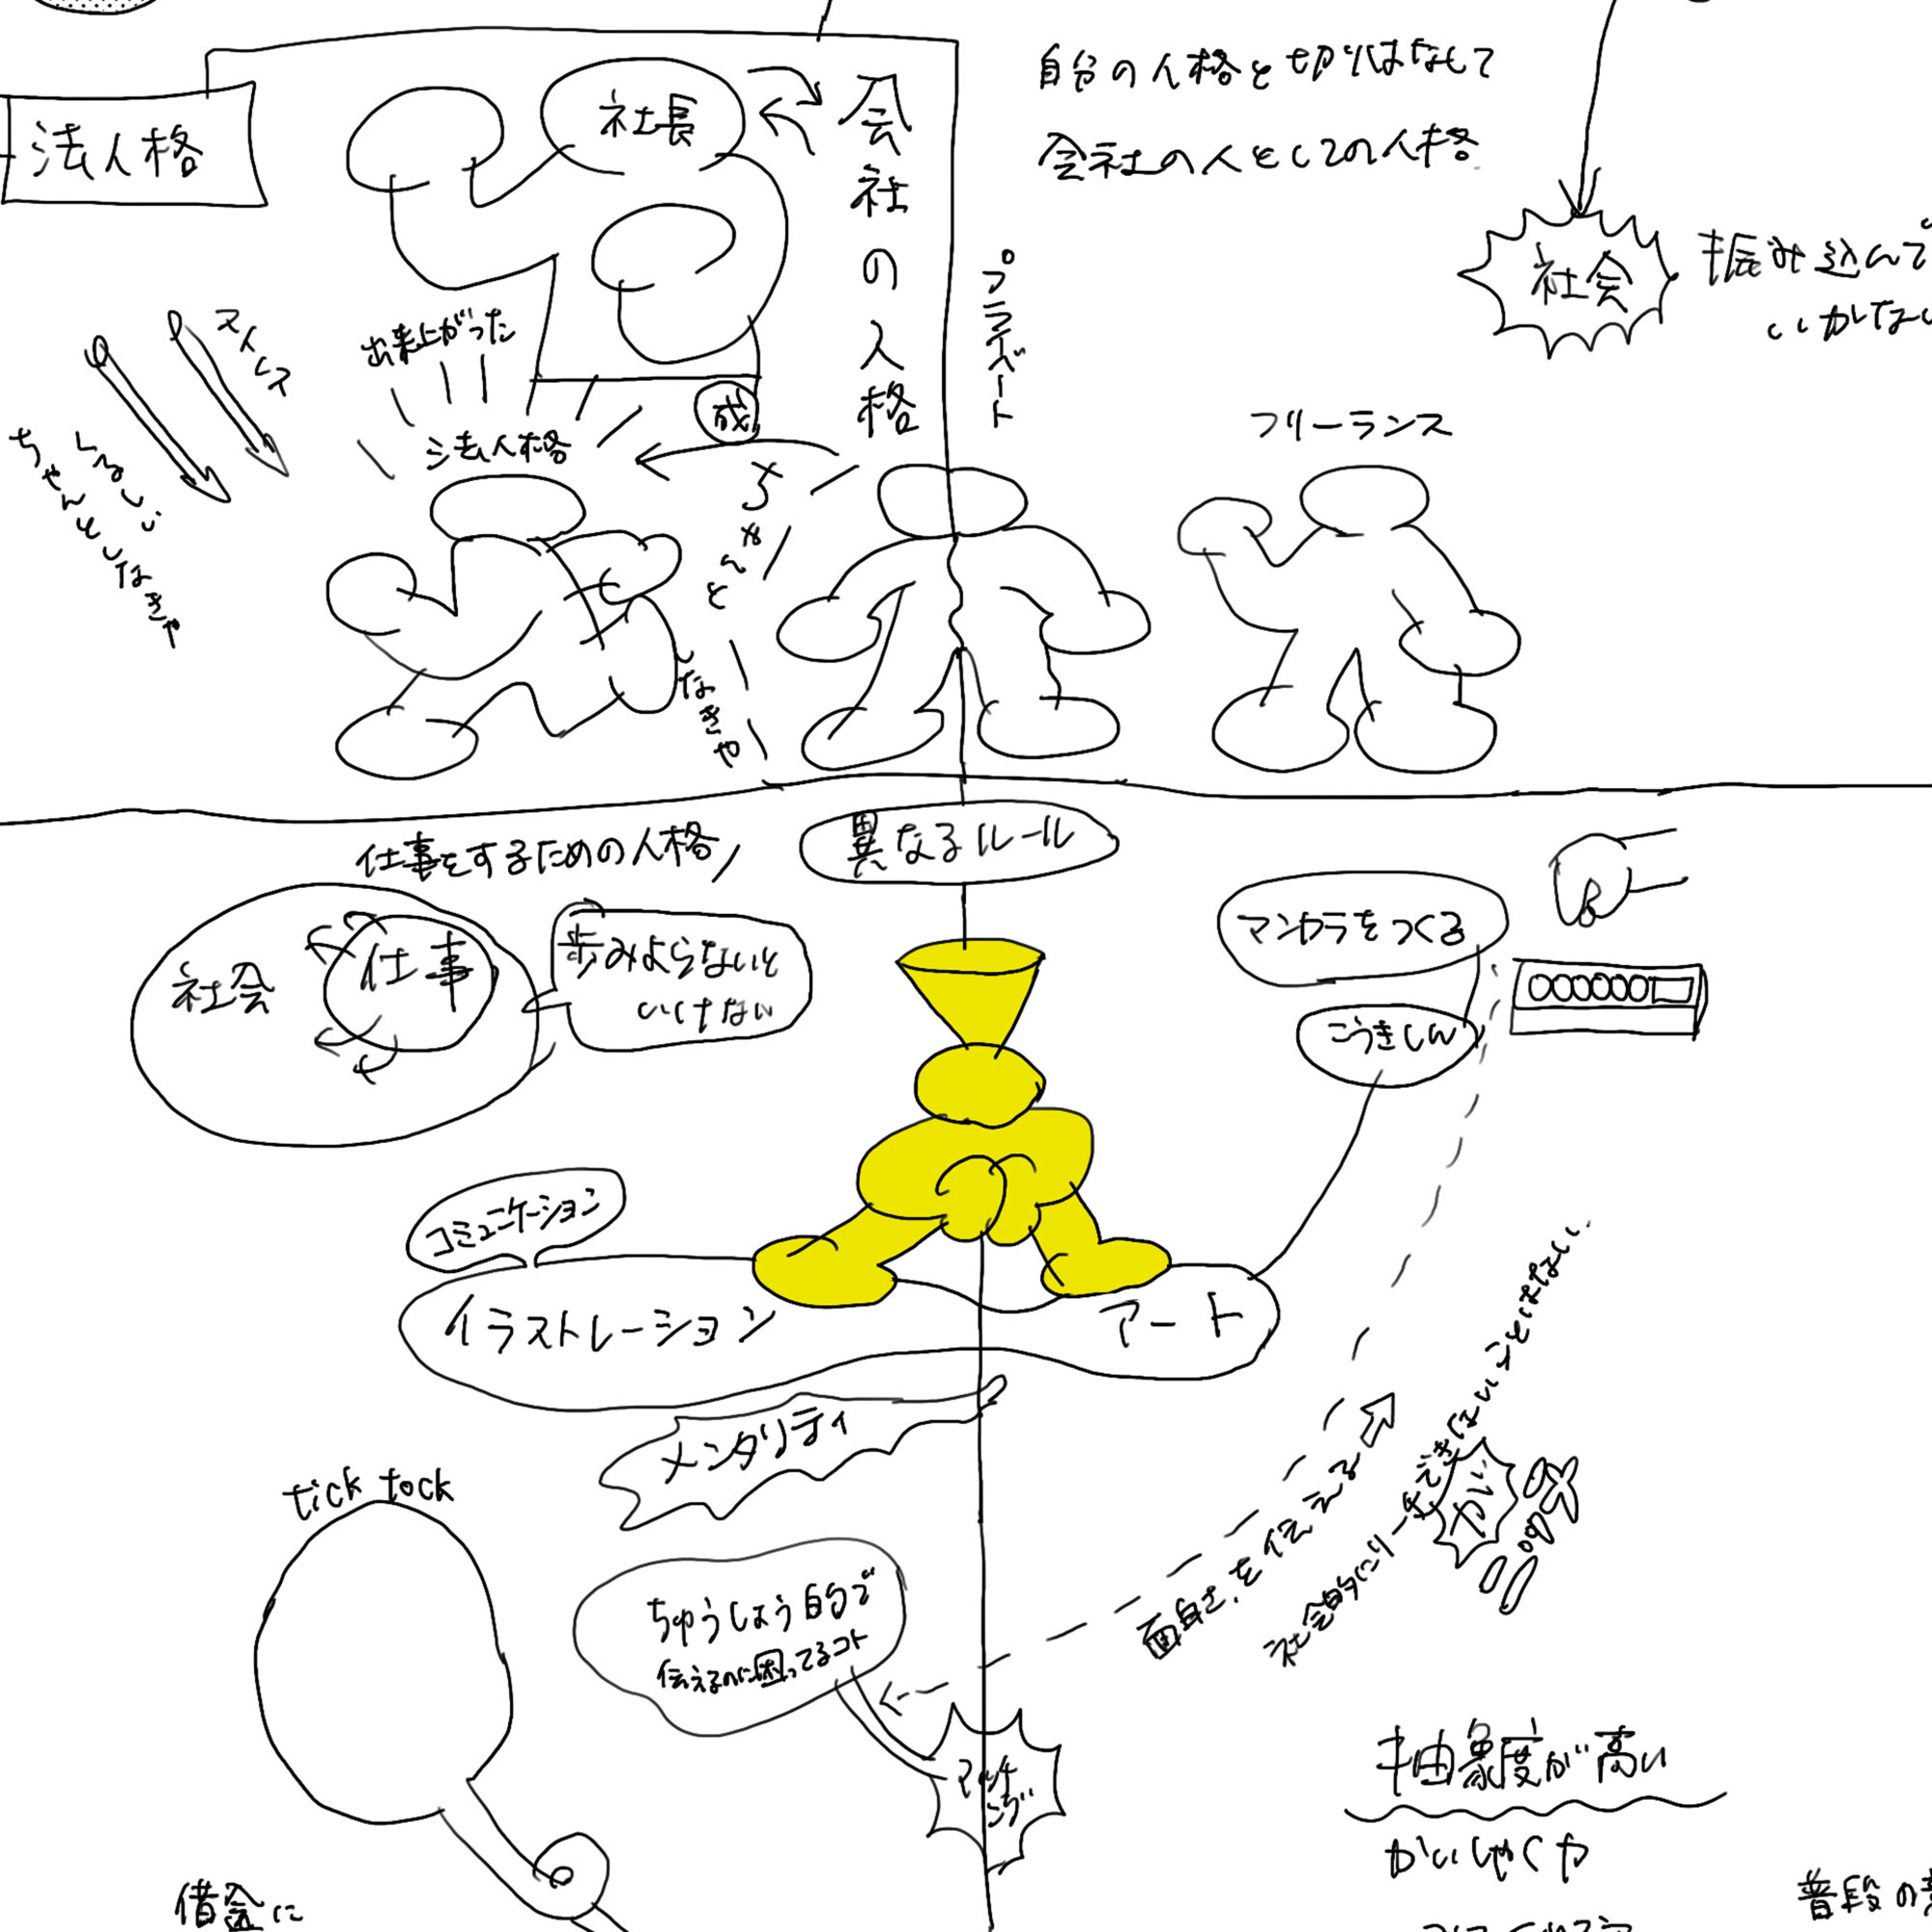 自分の人格と切りはなして
会社の人としての人格
法人格
社長
会社の人格
プライベート
社会
出来上がった
法人格
成
ちゃんと
しなきゃ
ちゃんとしなきゃ
フリーランス
仕事をするための人格
異なるルール
社会
仕事
歩みよらないと
いけない
マンカラをつくる
こうきしん
コミュニケーション
イラストレーション
アート
メンタリティ
tick tock
ちゅうしょう的で
伝えるのに困ってるコト
面白さを伝える
社会的に
抽象度が高い
かいしゃくや
借金に
普段の